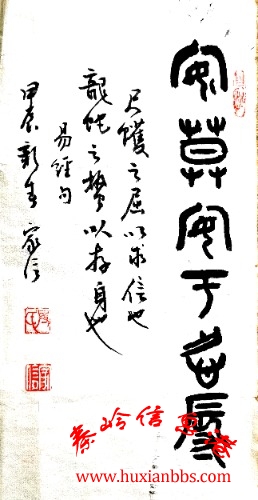 安莫安于忍辱
尺蠖之屈以求信也
龍蛇之蟄以存身也
易經句
甲辰新春 家信
秦岭信息港
www.huxianbbs.com